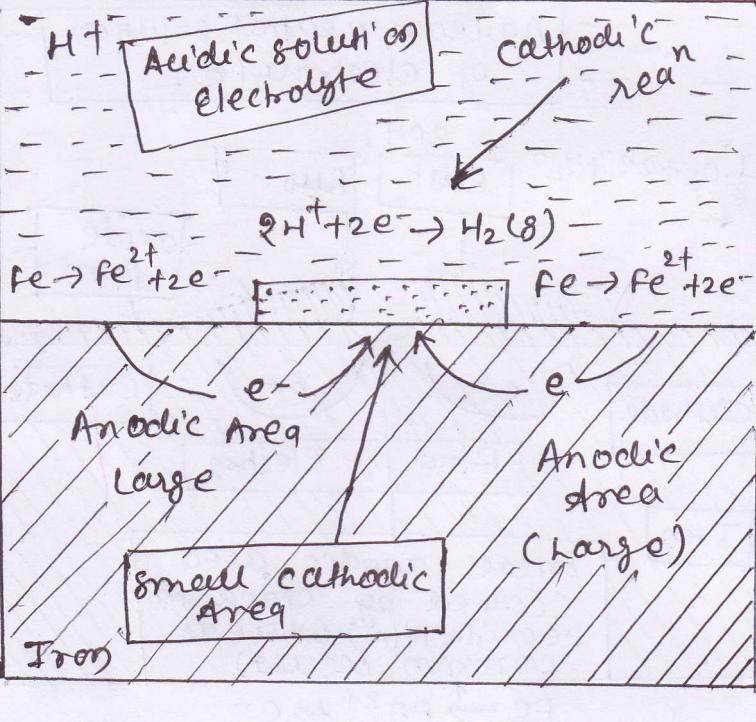 H+
Acidic solution
electrolyte
cathodic
reaⁿ
2H⁺+2e⁻→ H₂(g)
Fe → Fe²⁺+2e⁻
Fe → Fe²⁺+2e⁻
e-
e-
Anodic Area
Large
Anodic
Area
(Large)
Small cathodic
Area
Iron